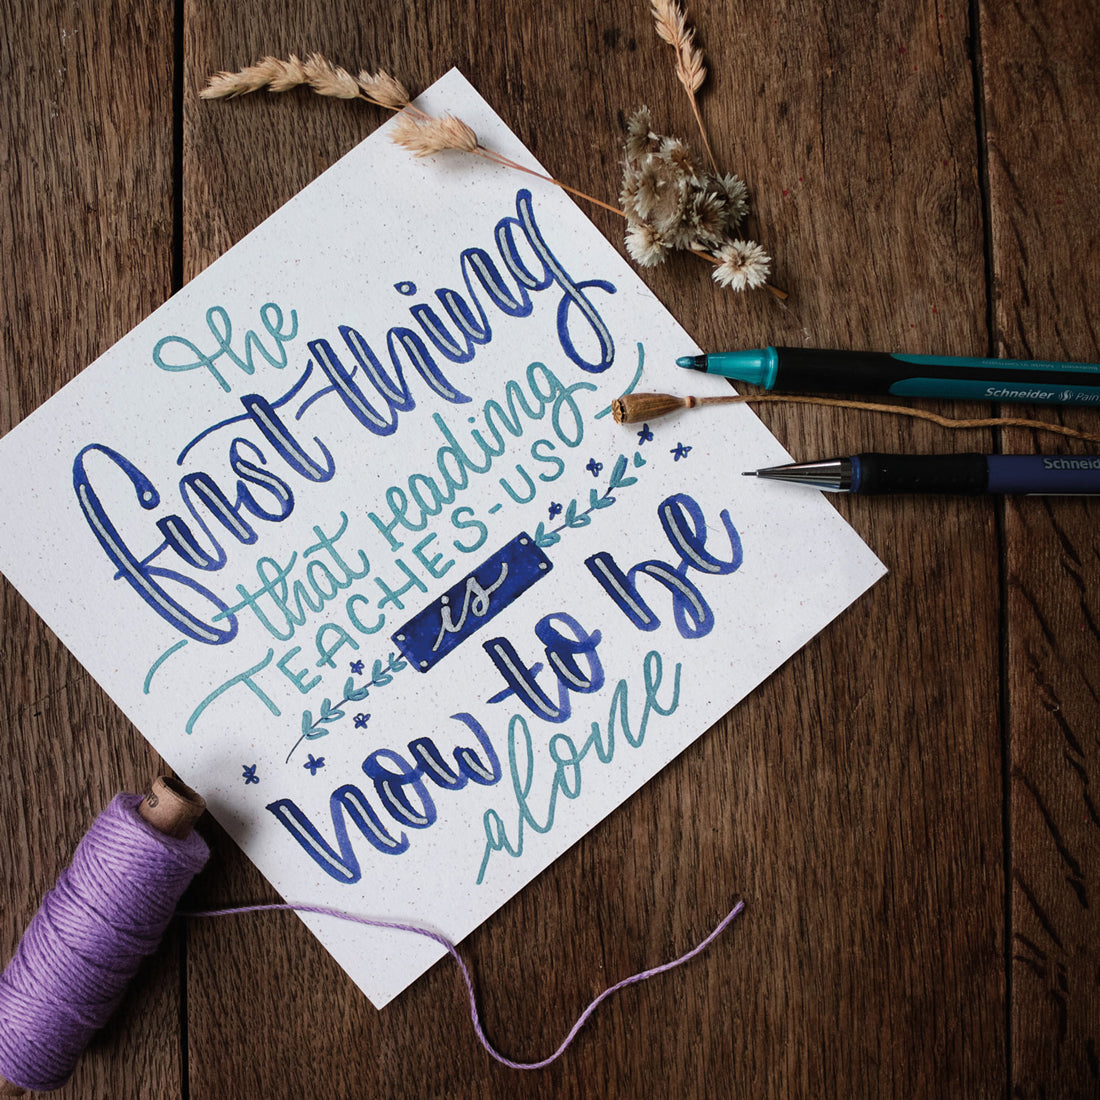 the
first thing
that reading
TEACHES-US
is
how to be
alone
Schneider
Schneid